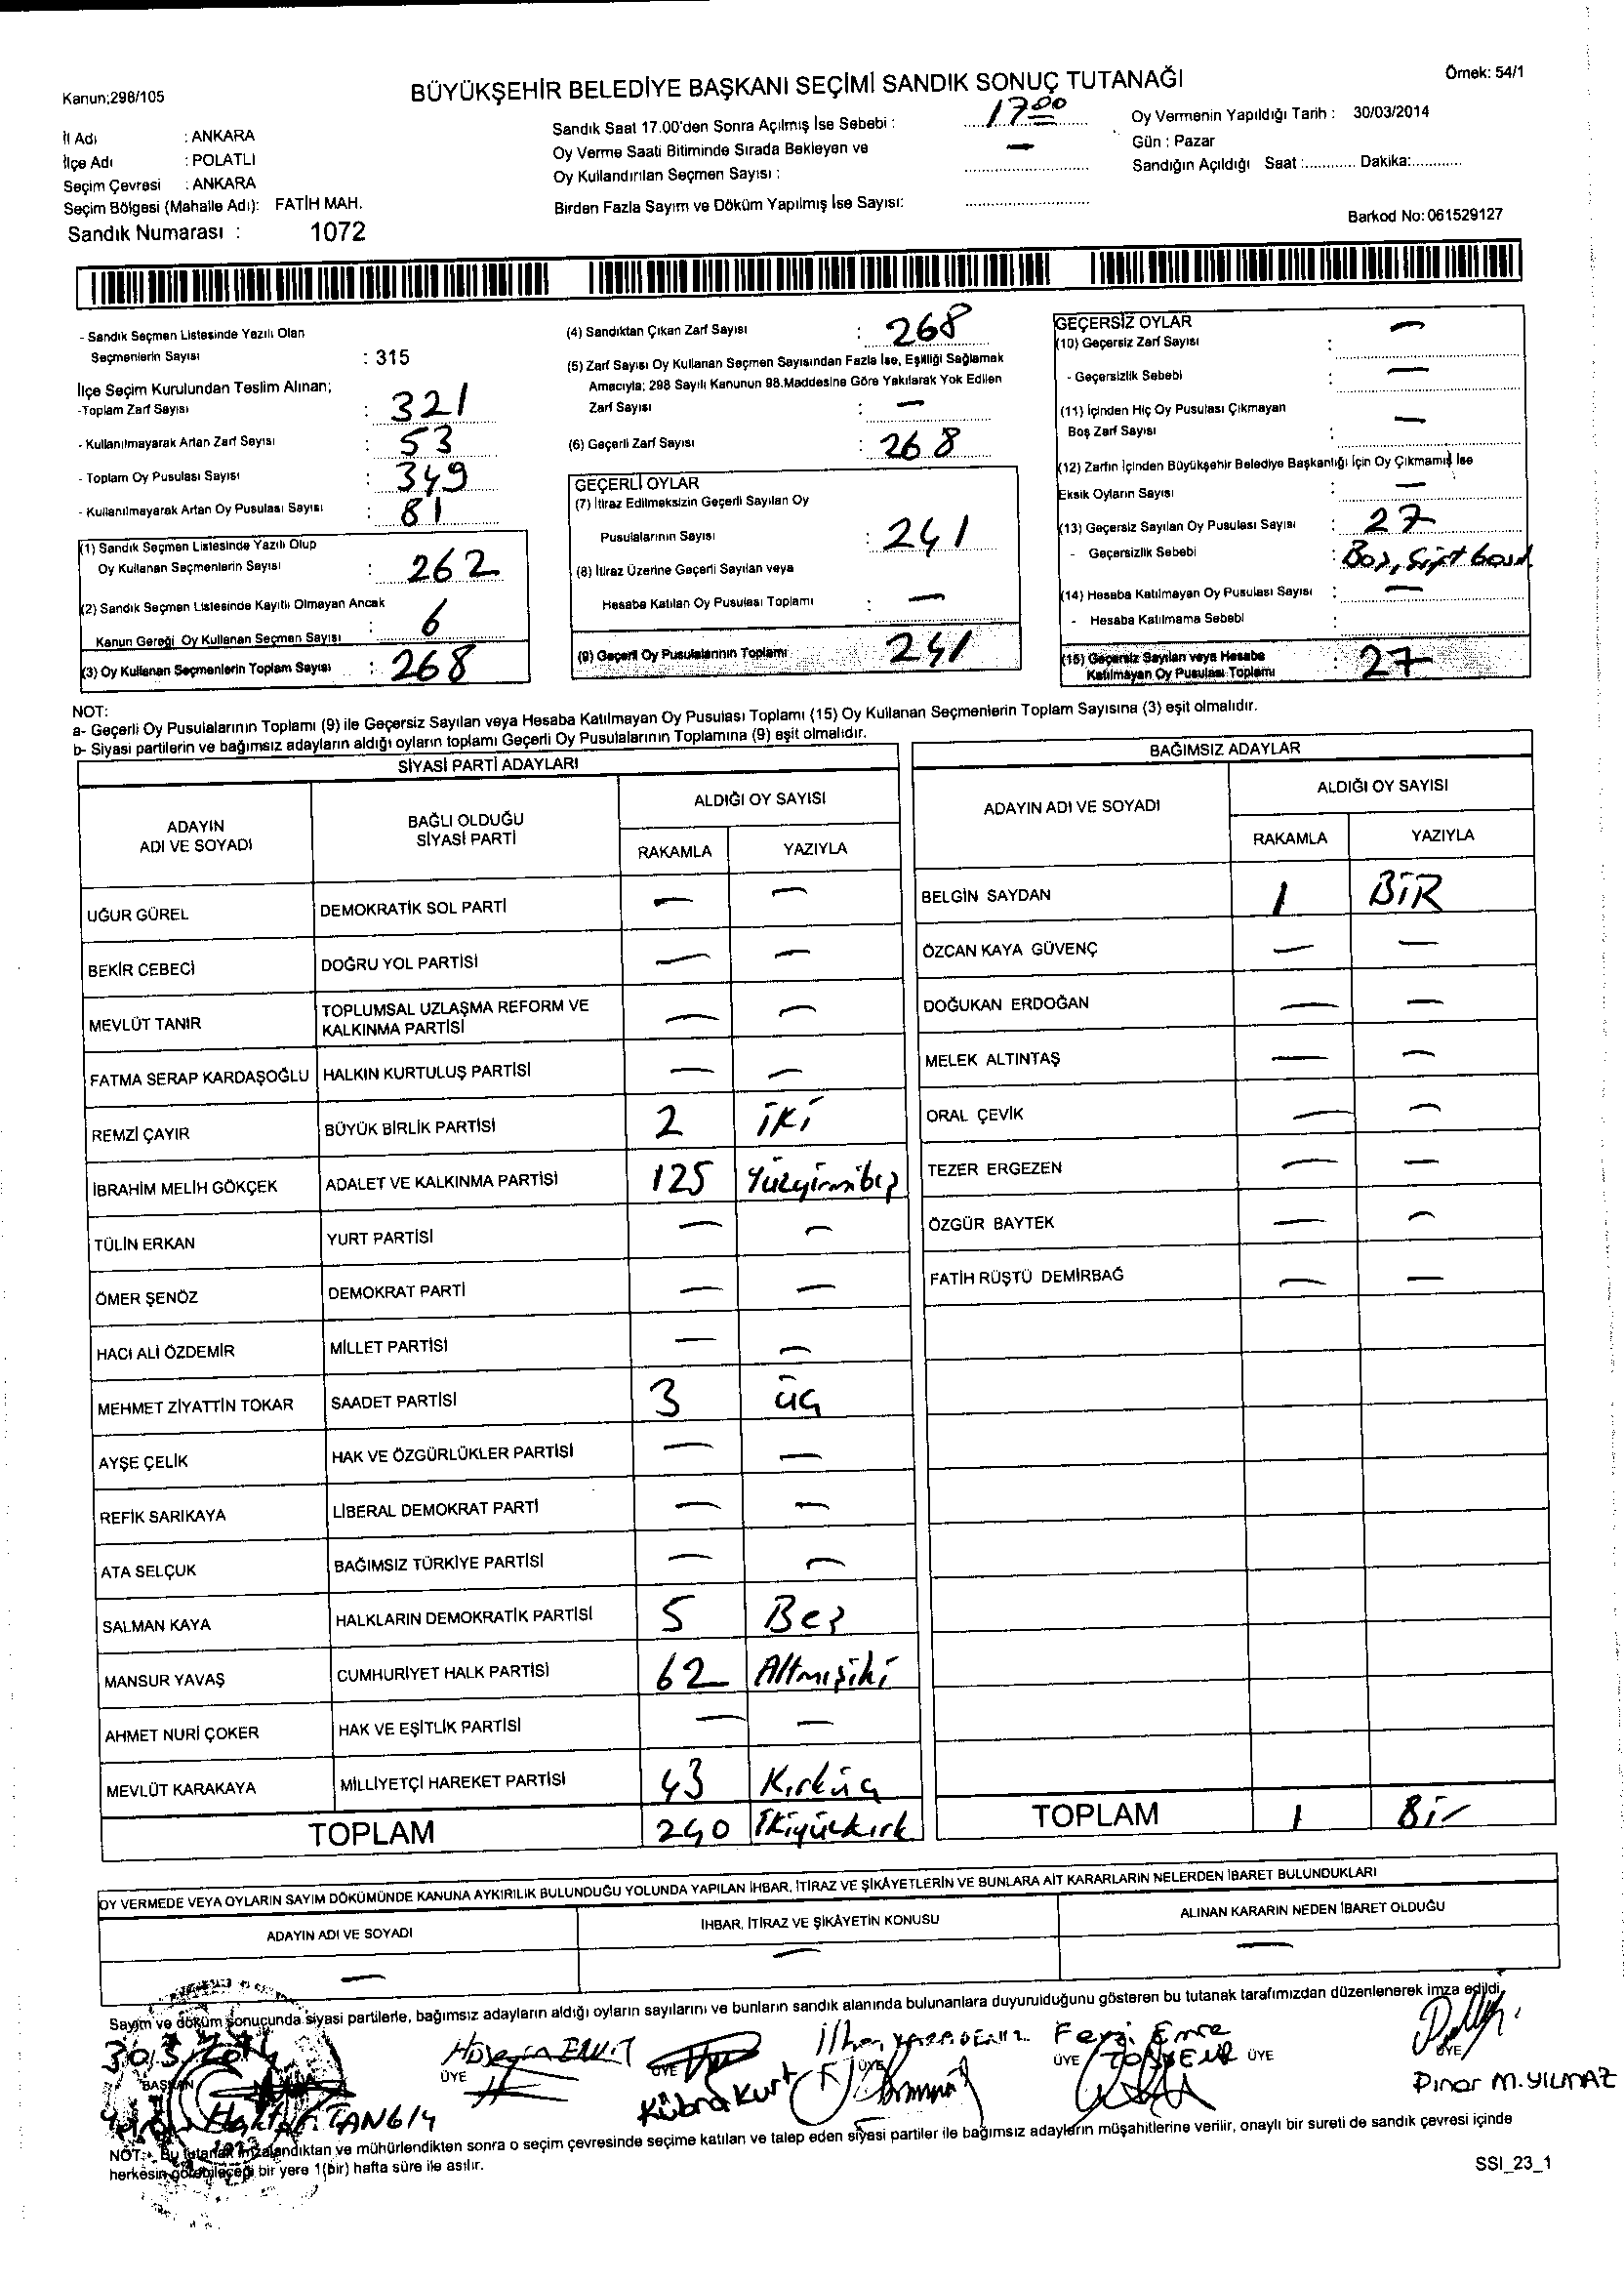 Kanun;298/105
BÜYÜKŞEHİR BELEDİYE BAŞKANI SEÇİMİ SANDIK SONUÇ TUTANAĞI
Örnek: 54/1
İl Adı : ANKARA
İlçe Adı : POLATLI
Seçim Çevresi : ANKARA
Seçim Bölgesi (Mahalle Adı): FATİH MAH.
Sandık Numarası : 1072
Sandık Saat 17.00'den Sonra Açılmış İse Sebebi : 17 00
Oy Verme Saati Bitiminde Sırada Bekleyen ve —
Oy Kullandırılan Seçmen Sayısı :
Birden Fazla Sayım ve Döküm Yapılmış İse Sayısı:
Oy Vermenin Yapıldığı Tarih : 30/03/2014
Gün : Pazar
Sandığın Açıldığı Saat :............ Dakika:............
Barkod No: 061529127
- Sandık Seçmen Listesinde Yazılı Olan
Seçmenlerin Sayısı : 315
İlçe Seçim Kurulundan Teslim Alınan;
-Toplam Zarf Sayısı : 321
- Kullanılmayarak Artan Zarf Sayısı : 53
- Toplam Oy Pusulası Sayısı : 349
- Kullanılmayarak Artan Oy Pusulası Sayısı : 81
(1) Sandık Seçmen Listesinde Yazılı Olup
Oy Kullanan Seçmenlerin Sayısı : 262
(2) Sandık Seçmen Listesinde Kayıtlı Olmayan Ancak
Kanun Gereği Oy Kullanan Seçmen Sayısı : 6
(3) Oy Kullanan Seçmenlerin Toplam Sayısı : 268
(4) Sandıktan Çıkan Zarf Sayısı : 268
(5) Zarf Sayısı Oy Kullanan Seçmen Sayısından Fazla İse, Eşitliği Sağlamak
Amacıyla; 298 Sayılı Kanunun 98.Maddesine Göre Yakılarak Yok Edilen
Zarf Sayısı : —
(6) Geçerli Zarf Sayısı : 268
GEÇERLİ OYLAR
(7) İtiraz Edilmeksizin Geçerli Sayılan Oy
Pusulalarının Sayısı : 241
(8) İtiraz Üzerine Geçerli Sayılan veya
Hesaba Katılan Oy Pusulası Toplamı : —
(9) Geçerli Oy Pusulalarının Toplamı 241
GEÇERSİZ OYLAR
(10) Geçersiz Zarf Sayısı : —
- Geçersizlik Sebebi : —
(11) İçinden Hiç Oy Pusulası Çıkmayan
Boş Zarf Sayısı : —
(12) Zarfın İçinden Büyükşehir Belediye Başkanlığı İçin Oy Çıkmamış İse
Eksik Oyların Sayısı : —
(13) Geçersiz Sayılan Oy Pusulası Sayısı : 27
- Geçersizlik Sebebi : Boş,
(14) Hesaba Katılmayan Oy Pusulası Sayısı : —
- Hesaba Katılmama Sebebi :
(15) Geçersiz Sayılan veya Hesaba
Katılmayan Oy Pusulası Toplamı : 27
NOT:
a- Geçerli Oy Pusulalarının Toplamı (9) ile Geçersiz Sayılan veya Hesaba Katılmayan Oy Pusulası Toplamı (15) Oy Kullanan Seçmenlerin Toplam Sayısına (3) eşit olmalıdır.
b- Siyasi partilerin ve bağımsız adayların aldığı oyların toplamı Geçerli Oy Pusulalarının Toplamına (9) eşit olmalıdır.
SİYASİ PARTİ ADAYLARI
ADAYIN ADI VE SOYADI
BAĞLI OLDUĞU SİYASİ PARTİ
ALDIĞI OY SAYISI
RAKAMLA YAZIYLA
UĞUR GÜREL DEMOKRATİK SOL PARTİ — —
BEKİR CEBECİ DOĞRU YOL PARTİSİ — —
MEVLÜT TANIR TOPLUMSAL UZLAŞMA REFORM VE KALKINMA PARTİSİ — —
FATMA SERAP KARDAŞOĞLU HALKIN KURTULUŞ PARTİSİ — —
REMZİ ÇAYIR BÜYÜK BİRLİK PARTİSİ 2 İKİ
İBRAHİM MELİH GÖKÇEK ADALET VE KALKINMA PARTİSİ 125 Yüzyirmibeş
TÜLİN ERKAN YURT PARTİSİ — —
ÖMER ŞENÖZ DEMOKRAT PARTİ — —
HACI ALİ ÖZDEMİR MİLLET PARTİSİ — —
MEHMET ZİYATTİN TOKAR SAADET PARTİSİ 3 üç
AYŞE ÇELİK HAK VE ÖZGÜRLÜKLER PARTİSİ — —
REFİK SARIKAYA LİBERAL DEMOKRAT PARTİ — —
ATA SELÇUK BAĞIMSIZ TÜRKİYE PARTİSİ — —
SALMAN KAYA HALKLARIN DEMOKRATİK PARTİSİ 5 Beş
MANSUR YAVAŞ CUMHURİYET HALK PARTİSİ 62 Altmışiki
AHMET NURİ ÇOKER HAK VE EŞİTLİK PARTİSİ — —
MEVLÜT KARAKAYA MİLLİYETÇİ HAREKET PARTİSİ 43 Kırküç
TOPLAM 240 İkiyüzkırk
BAĞIMSIZ ADAYLAR
ADAYIN ADI VE SOYADI
ALDIĞI OY SAYISI
RAKAMLA YAZIYLA
BELGİN SAYDAN 1 BİR
ÖZCAN KAYA GÜVENÇ — —
DOĞUKAN ERDOĞAN — —
MELEK ALTINTAŞ — —
ORAL ÇEVİK — —
TEZER ERGEZEN — —
ÖZGÜR BAYTEK — —
FATİH RÜŞTÜ DEMİRBAĞ — —
TOPLAM 1 Bir
OY VERMEDE VEYA OYLARIN SAYIM DÖKÜMÜNDE KANUNA AYKIRILIK BULUNDUĞU YOLUNDA YAPILAN İHBAR, İTİRAZ VE ŞİKÂYETLERİN VE BUNLARA AİT KARARLARIN NELERDEN İBARET BULUNDUKLARI
ADAYIN ADI VE SOYADI İHBAR, İTİRAZ VE ŞİKÂYETİN KONUSU ALINAN KARARIN NEDEN İBARET OLDUĞU
— — —
Sayım ve döküm sonucunda siyasi partilerle, bağımsız adayların aldığı oyların sayılarını ve bunların sandık alanında bulunanlara duyurulduğunu gösteren bu tutanak tarafımızdan düzenlenerek imza edildi.
30/3/2014
BAŞKAN ÜYE ÜYE ÜYE ÜYE ÜYE ÜYE
Kübra Kurt
Feyzi Emre
Pınar M. YILMAZ
NOT: Bu tutanak imzalandıktan ve mühürlendikten sonra o seçim çevresinde seçime katılan ve talep eden siyasi partiler ile bağımsız adayların müşahitlerine verilir, onaylı bir sureti de sandık çevresi içinde
herkesin görebileceği bir yere 1(bir) hafta süre ile asılır.
SSI_23_1